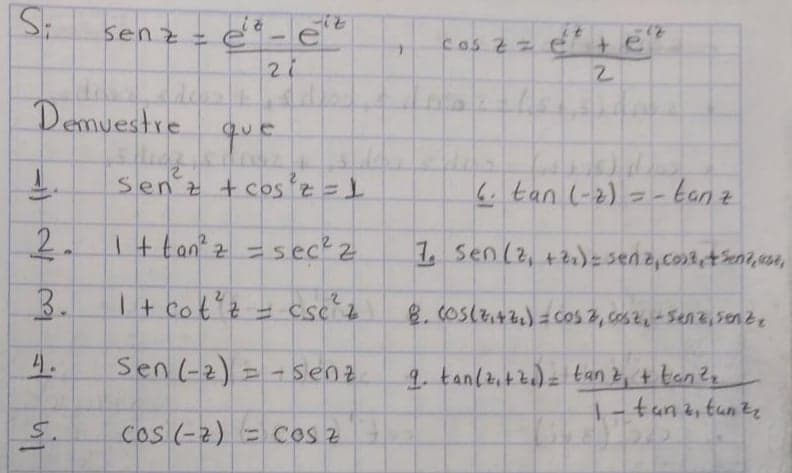 Si sen z = (e^{iz} - e^{-iz}) / 2i , cos z = (e^{iz} + e^{-iz}) / 2
Demuestre que
1. sen²z + cos²z = 1
2. 1 + tan²z = sec²z
3. 1 + cot²z = csc²z
4. sen(-z) = -senz
5. cos(-z) = cosz
6. tan(-z) = -tanz
7. sen(z₁+z₂) = senz₁cosz₂ + senz₂cosz₁
8. cos(z₁+z₂) = cosz₁cosz₂ - senz₁senz₂
9. tan(z₁+z₂) = (tanz₁ + tanz₂) / (1 - tanz₁tanz₂)